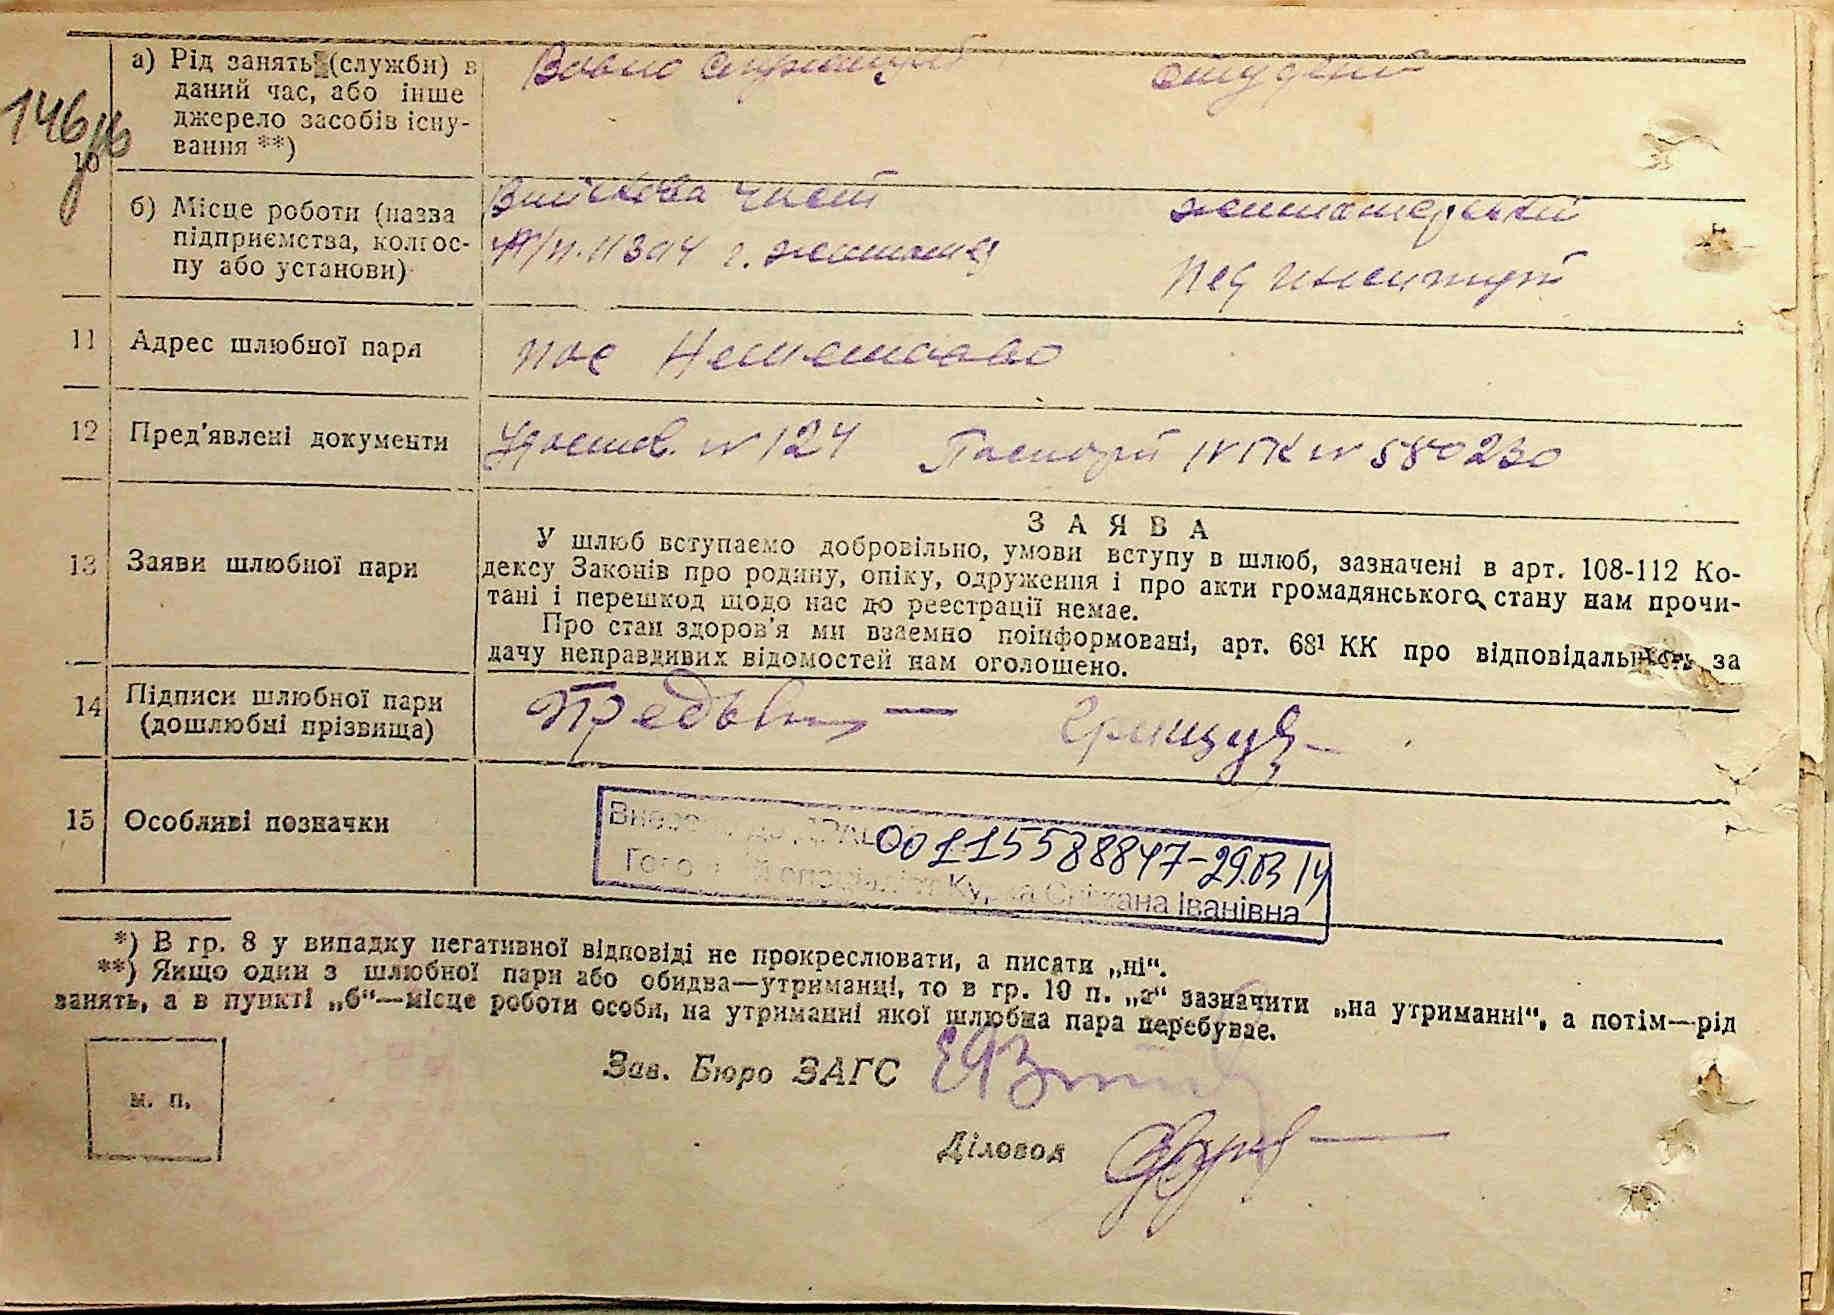 146/16
10
а) Рід занять (служби) в
даний час, або інше
джерело засобів існу-
вання **)
студент
б) Місце роботи (назва
підприємства, колгос-
пу або установи)
Військова част
п/п. 11394 г. житомир
житомерский
пед институт
11 Адрес шлюбної пари
пос
12 Пред'явлені документи
Удостов. N 124 Паспорт IV ПК N 580230
13 Заяви шлюбної пари
ЗАЯВА
У шлюб вступаємо добровільно, умови вступу в шлюб, зазначені в арт. 108-112 Ко-
дексу Законів про родину, опіку, одруження і про акти громадянського стану нам прочи-
тані і перешкод щодо нас до реєстрації немає.
Про стан здоров'я ми взаємно поінформовані, арт. 68¹ КК про відповідальність за
дачу неправдивих відомостей нам оголошено.
14 Підписи шлюбної пари
(дошлюбні прізвища)
15 Особливі позначки
00115588847-29.03 14
Іванівна
*) В гр. 8 у випадку негативної відповіді не прокреслювати, а писати „ні“.
**) Якщо один з шлюбної пари або обидва—утриманці, то в гр. 10 п. „а“ зазначити „на утриманні“, а потім—рід
занять, а в пункті „б“—місце роботи особи, на утриманні якої шлюбна пара перебуває.
Зав. Бюро ЗАГС
м. п.
Діловод